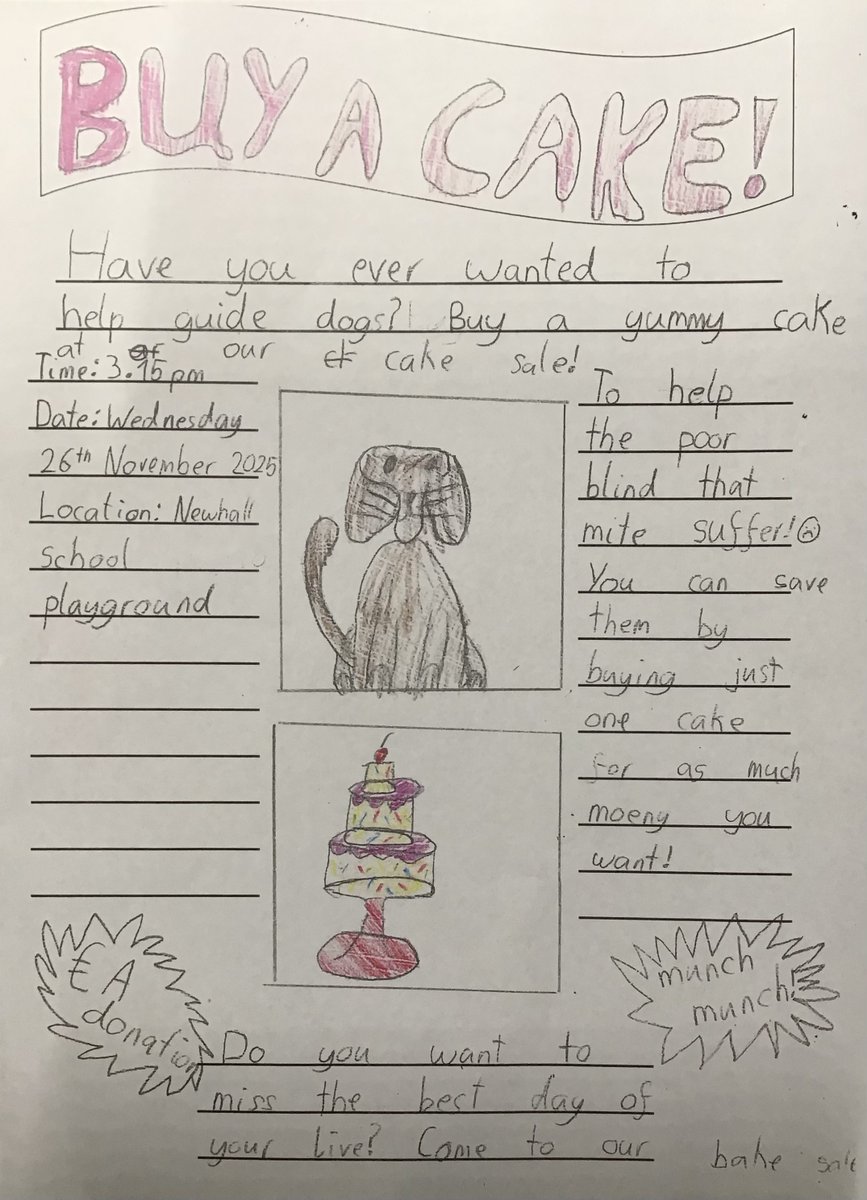 BUY A CAKE!
Have you ever wanted to
help guide dogs? Buy a yummy cake
at our cake sale!
Time: 3.15pm
Date: Wednesday
26th November 2025
Location: Newhall
school
playground
To help
the poor
blind that
mite suffer!☹
You can save
them by
buying just
one cake
for as much
moeny you
want!
€ A
donation
munch
munch!
Do you want to
miss the best day of
your live? Come to our bake sale